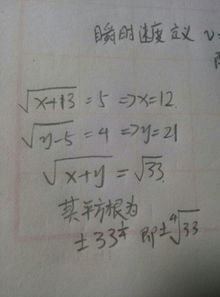 瞬时速度定义 v=
√(x+13) = 5 => x=12.
√(y-5) = 4 => y=21
√(x+y) = √33.
其平方根为
± 33^(1/4) 即±⁴√33